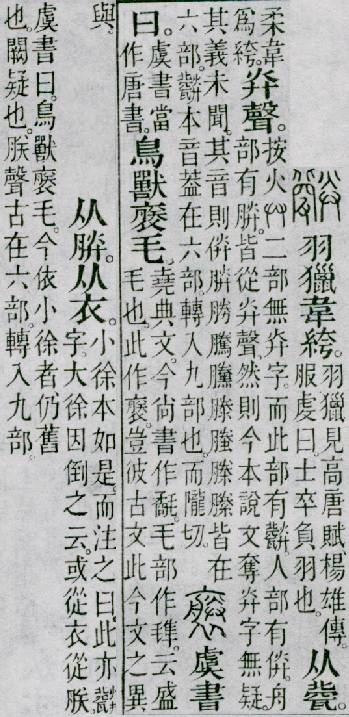 羽獵韋絝。羽獵見高唐賦、楊雄傳。服虔曰。士卒負羽也。从㼱。
柔韋爲絝。灷聲。按火𠬞二部無灷字。而此部有人部有㑞。舟部有朕。皆從灷聲。然則今本說文奪灷字無疑。
其義未聞。其音則㑞朕勝騰滕皆在六部。本音葢在六部。轉入九部也。而隴切。虞書
曰。虞書當作唐書。鳥獸毛。堯典文。今尚書作氄。毛部作云盛毛也。此作豈彼古文此今文之異
與。从朕从衣。小徐本如是。而注之曰。此亦字。大徐因倒之云。或從衣從朕。
虞書曰。鳥獸毛。今依小徐者仍舊
也。闕疑也。朕聲古在六部。轉入九部。